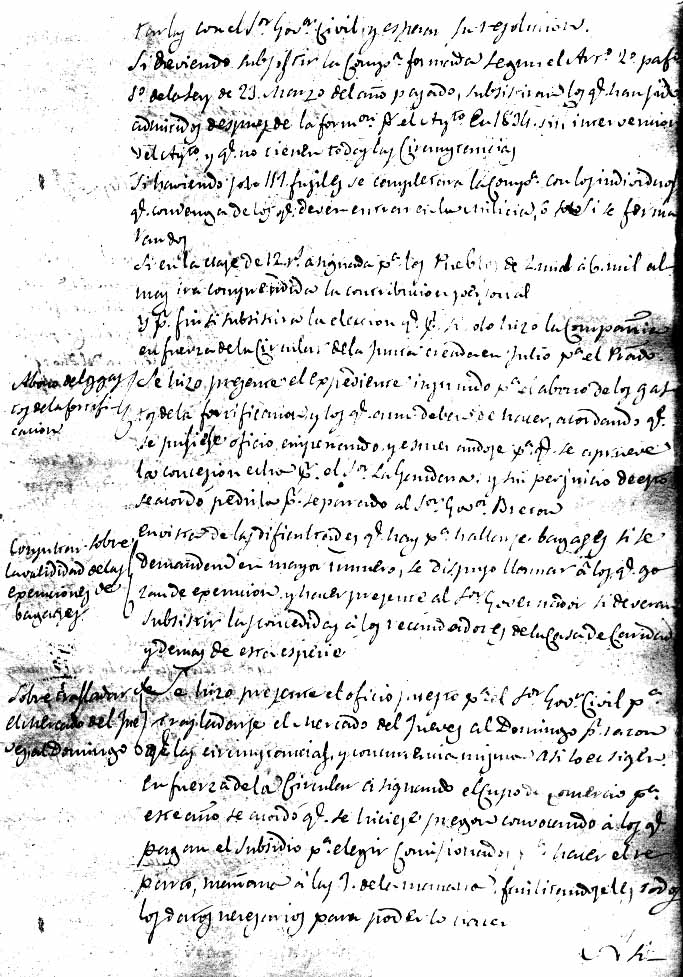 con el Sor. Govor. Civil, y esperar su resolucion.
Si deviendo subsistir la Compa. formada segun el Arto. 2o. 
de la Ley de 23 Marzo del año pasado, subsistiran los qe. han sido
admitidos despues de la formon. pr. el Ayto. En 1834. sin intervencion
del Ayto. y qe. no tienen todas las Circunstancias
Si haviendo solo 111 fusiles se completara la Compa. con los individuos
qe. convenga de los qe. deven entrar en la Milicia, ô si se forma
Si en la clase de 12 rs. asignada pa. los Pueblos de 2 mil a 6 mil al
mas ira comprendida la contribucion personal
Y pr. fin si subsistira la eleccion qe. pr. si solo hizo la Compañia
en fuerza de la Circular de la Junta creada en Julio pa. el
Abono de los gas
tos de la fortifi
cacion
Se hizo presente el expediente instruido pa. el abono de los gas
tos de la fortificacion y los qe. aun deben de hacer, acordando qe.
se pusiese oficio, y esmerandose pa. qe. se apruebe
la concesion echa pr. el Sor. y sin perjuicio de esto
se acordo pedirla pr. separado al Sor. Govor.
sobre
la valididad de las
exenciones de
bagages
en vista de las dificultades qe. hay pa. hallarse bagages si se
demandan en mayor numero, se dispuso llamar â los qe. go
zan de exencion, y hacer presente al Sor. Governador si deveran
subsistir las concedidas â los recaudadores de la Casa de Caridad
y demas de esta especie
Sobre trasladar
el Mercado del Jue
ves al Domingo
Se hizo presente el oficio puesto pr. el Sor. Govor. Civil pa.
trasladarse el mercado del Jueves al Domingo pr. razon
qe. las circunstancias, y concurrencia misma asi lo exigen.
En fuerza de la Circular asignando el Cupo de Comercio pa.
este año se acordó qe. se hiciese pregon convocando â los qe.
pagan el subsidio pa. elegir Comisionados pa. hacer el re
parto, mañana â las de la mañana facilitandoseles todos
los datos necesarios para poderlo hacer
Si